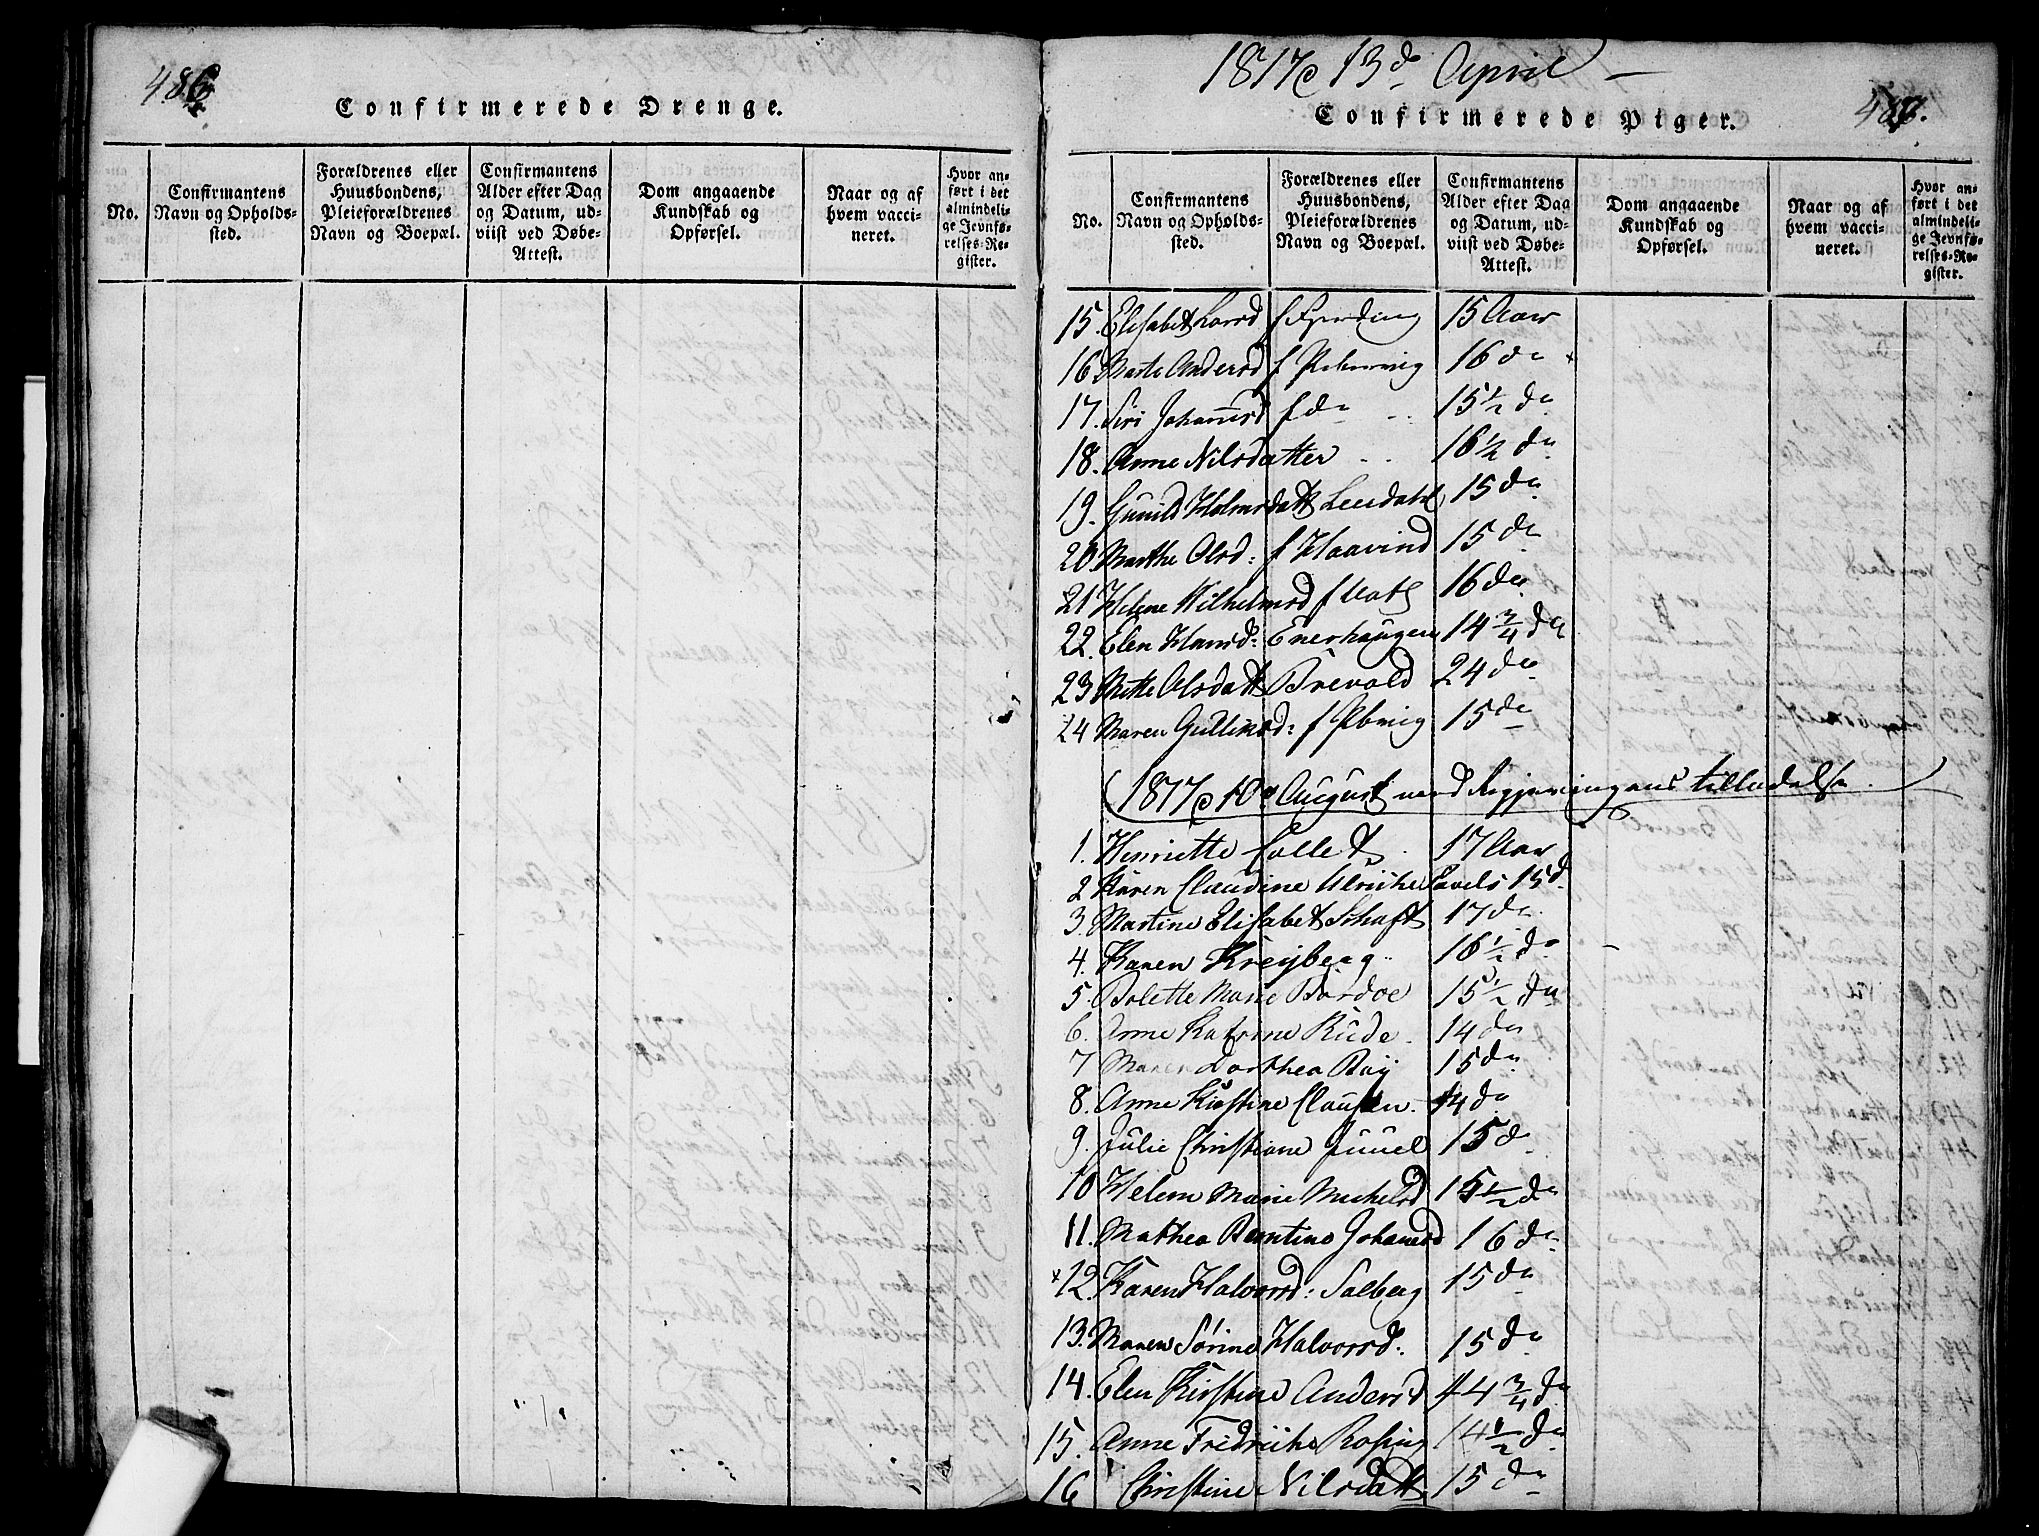 486
Confirmerede Drenge.
No.
Confirmantens Navn og Opholds-sted.
Forældrenes eller Huusbondens, Pleieforældrenes Navn og Boepæl.
Confirmantens Alder efter Dag og Datum, ud-viist ved Døbe-Attest.
Dom angaaende Kundskab og Opførsel.
Naar og af hvem vacci-neret.
Hvor an-ført i det almindeli-ge Jevnfø-relses-Re-gister.
1817 13de April
Confirmerede Piger.
487.
No.
Confirmantens Navn og Opholds-sted.
Forældrenes eller Huusbondens, Pleieforældrenes Navn og Boepæl.
Confirmantens Alder efter Dag og Datum, ud-viist ved Døbe-Attest.
Dom angaaende Kundskab og Opførsel.
Naar og af hvem vacci-neret.
Hvor an-ført i det almindeli-ge Jevnfø-relses-Re-gister.
15. Elisabet Larsd f Fjerding 15 Aar
16 Marte Andersd f 16 do
17. Siri Johannsd f do 15 1/2 do
18. Anne Nilsdatter 16 1/2 do
19. Gunild Holmsdatt 15 do
20 Marthe Olsd: f Haavind 15 do
21 Helene Wilhelmsd f 16 do
22. Elen Hansd: Enerhaugen 14 3/4 do
23 Mette Olsdatt Brevold 24 do
24 Maren Gullinsd: f 15 do
1817 10 August med Regjeringens tilladelse
1. Henriette Collett 17 Aar
2 Karen Claudine Ulrikke Pavels 15 d
3. Martine Elisabet Schaft 17 do
4. Karen Kreyberg 16 1/2 do
5. Bolette Marie Bardoe 15 1/2 do
6. Anne Katrine Rude 14 do
7 Maren Dorthea Ruy 15 do
8. Anne Kirstine Clausen 14 do
9. Julie Christiane Juuel 15 do
10 Helene Marie Michelsd 15 1/2 do
11. Mathea Berntine Johanesd 16 do
12. Karen Halvorsd: Solberg 15 do
13. Maren Sørine Halvorsd. 15 do
14. Elen Kirstine Andersd 14 3/4 do
15. Anne Fredrikke Rosing 14 1/2 do
16 Christine Nilsdatt 15 do